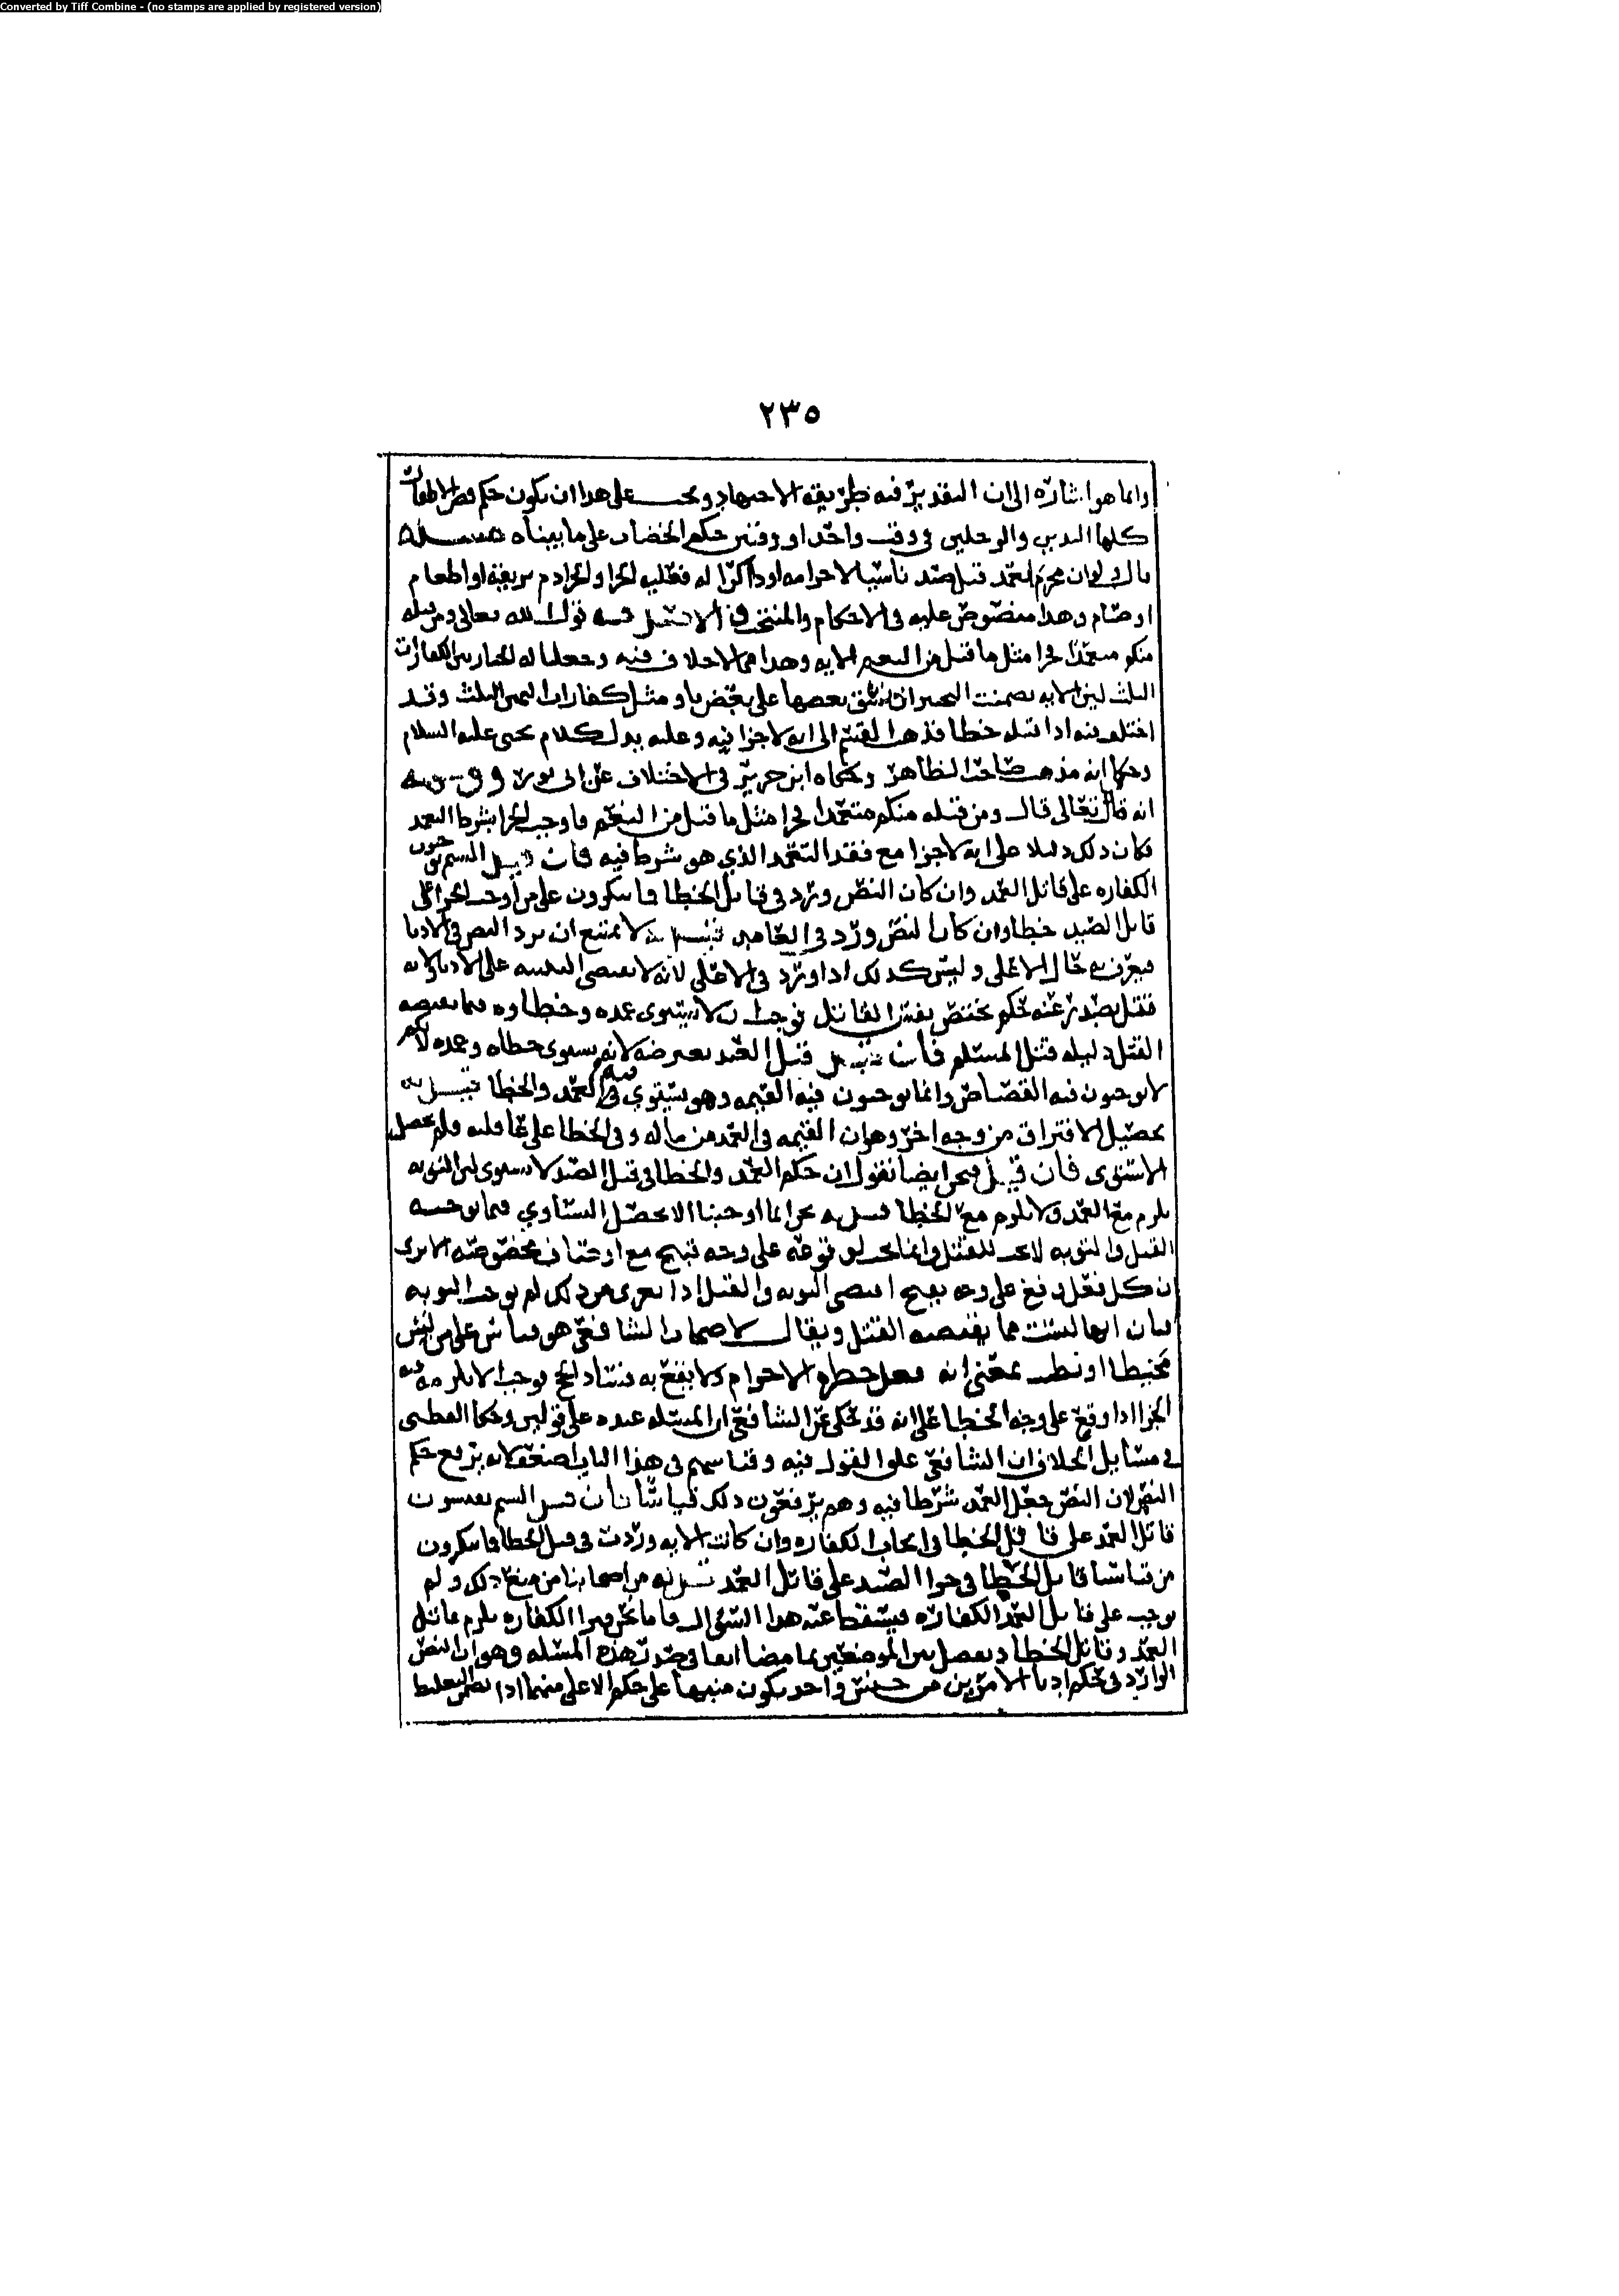 Converted by Tiff Combine - (no stamps are applied by registered version)
٢٣٥
وانما هو اشاره الى ان التقدير فيه طريقه الاجتهاد ويجب على هذا ان يكون حكم قص الاظفار
كلها اليدين والرجلين فى وقت واحد او وقتين حكم الخضاب على ما بيناه مسئله
قال ولو ان محرما تعمد قتل صيد ناسيا لاحرامه او ذاكرا له فعليه الجزا والجزا دم يريقه او اطعام
او صيام وهذا منصوص عليه فى الاحكام والمنتخب الاصل فيه قول الله تعالى ومن قتله
منكم متعمدا فجزا مثل ما قتل من النعم الايه وهذا مما لا خلاف فيه وجعلنا له الخيار بين الكفارات
الثلث لان الايه تضمنت التخيير بعضها على بعض باو مثل كفارات اليمين الثلث وقد
اختلف فيه اذا قتله خطا فذهب القسم الى انه لا جزا فيه وعليه يدل كلام يحيى عليه السلام
وحكى انه مذهب اصحاب الظاهر وحكاه ابن جرير فى الاختلاف عن ابى ثور
انه قال تعالى قال ومن قتله منكم متعمدا فجزا مثل ما قتل من النعم فاوجب الجزا بشرط التعمد
فكان ذلك دليلا على انه لا جزا مع فقد التعمد الذي هو شرط فيه فان قيل الستم توجبون
الكفاره على قاتل العمد وان كان النص ورد فى قاتل الخطا فما تنكرون على من اوجب الجزا على
قاتل الصيد خطا وان كان النص ورد فى العامد قيل له لا يمتنع ان يرد النص فى الادنا
فيعرف به حال الاعلى وليس كذلك اذا ورد فى الاعلى لانه لا يقتضى التنبيه على الادنا ولانه
قتل يصدر عنه حكم يختص بنفس القاتل فوجب ان لا يستوى عمده وخطاوه فيما يقتضيه
القتل دليله قتل المسلم فان قيل قتل العبد يعترضه لانه يستوى خطاه وعمده لانكم
لا توجبون فيه القصاص وانما توجبون فيه القيمه وهو يستوي فيه العمد والخطا قيل له
يحصل الافتراق من وجه اخر وهو ان القيمه فى العمد من ماله وفى الخطا على عاقلته ولم يحصل
الاستوى فان قيل فنحن ايضا نقول ان حكم العمد والخطا فى قتل الصيد لا يستوى لان التوبه
يلزم مع العمد ولا يلزم مع الخطا قيل له نحن انما اوجبنا الا يحصل التساوي فيما يوجبه
القتل والتوبه لا تجب للقتل وانما تجب لوقوعه على وجه قبيح مع ارتفاع مخصوصه الا ترى
ان كل فعل وقع على وجه يقبح اقتضى التوبه والقتل اذا تعرى من ذلك لم يوجب التوبه
فبان انها ليست مما يقتضيه القتل ويقال لاصحاب الشافعي هو قياس على من لبس
مخيطا او تطيب بمعنى انه فعل حظره الاحرام ولا يقع به فساد الحج فوجب الا يلزم فيه
الجزا اذا وقع على وجه الخطا على انه قد حكى عن الشافعي ان المسئله عنده على قولين وحكا
فى مسايل الخلاف ان الشافعي علق القول فيه وقياسهم فى هذا الباب اضعف لانه يرفع حكم
النص لان النص جعل العمد شرطا فيه وهم يرفعون ذلك قياسا فان قيل الستم تقيسون
قاتل العمد على قاتل الخطا فى ايجاب الكفاره وان كانت الايه وردت فى قتل الخطا فما تنكرون
من قياسنا قاتل الخطا فى جزا الصيد على قاتل العمد قيل له من اصحابنا من منع ذلك ولم
يوجب على قاتل العمد الكفاره فيسقط عنه هذا السؤال فاما نحن فنرا الكفاره يلزم قاتل
العمد وقاتل الخطا ونفصل بين الموضعين بما مضا انفا فى صدر هذه المسئله وهو ان النص
الوارد فى حكم ادنا الامرين من جنس واحد يكون منبها على حكم الاعلى منهما اذا تضمن التغليظ